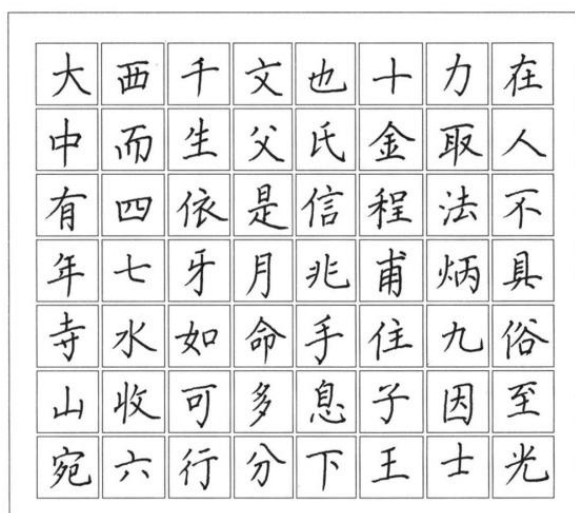 大西千文也十力在
中而生父氏金取人
有四依是信程法不
年七牙月兆甫炳具
寺水如命手住九俗
山收可多息子因至
宛六行分下王士光